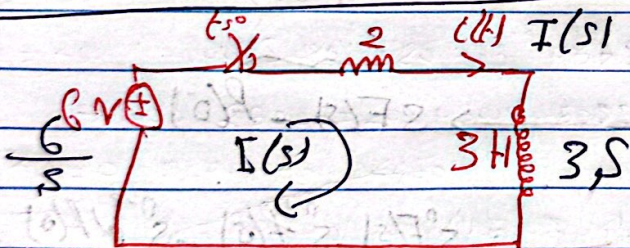 t=0 2 i(t) I(s)
6 v
6/s I(s) 3H 3s